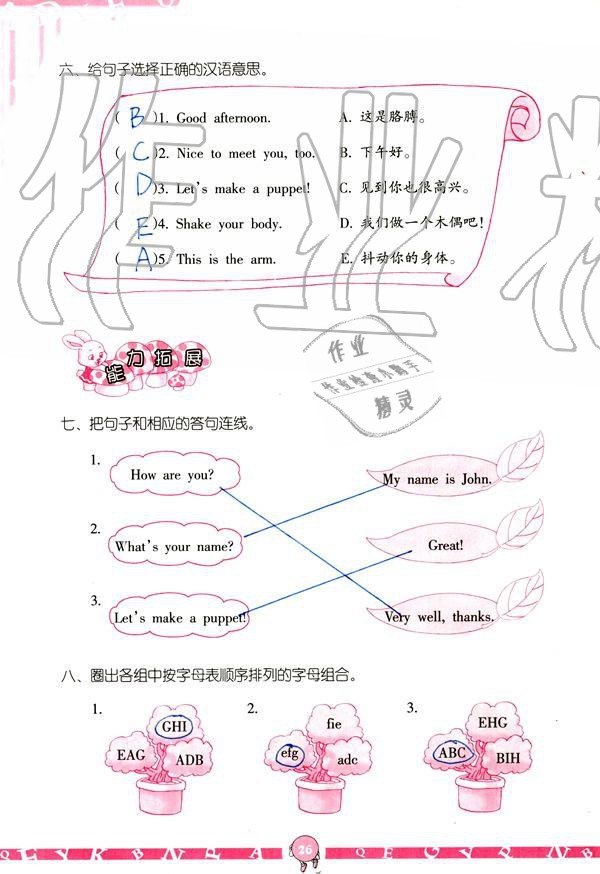 六、给句子选择正确的汉语意思。
( B )1. Good afternoon. A. 这是胳膊。
( C )2. Nice to meet you, too. B. 下午好。
( D )3. Let's make a puppet! C. 见到你也很高兴。
( E )4. Shake your body. D. 我们做一个木偶吧!
( A )5. This is the arm. E. 抖动你的身体。
能力拓展
七、把句子和相应的答句连线。
1. How are you? My name is John.
2. What's your name? Great!
3. Let's make a puppet! Very well, thanks.
八、圈出各组中按字母表顺序排列的字母组合。
1. GHI EAG ADB
2. fie efg adc
3. EHG ABC BIH
26
作业
作业检查小助手
精灵